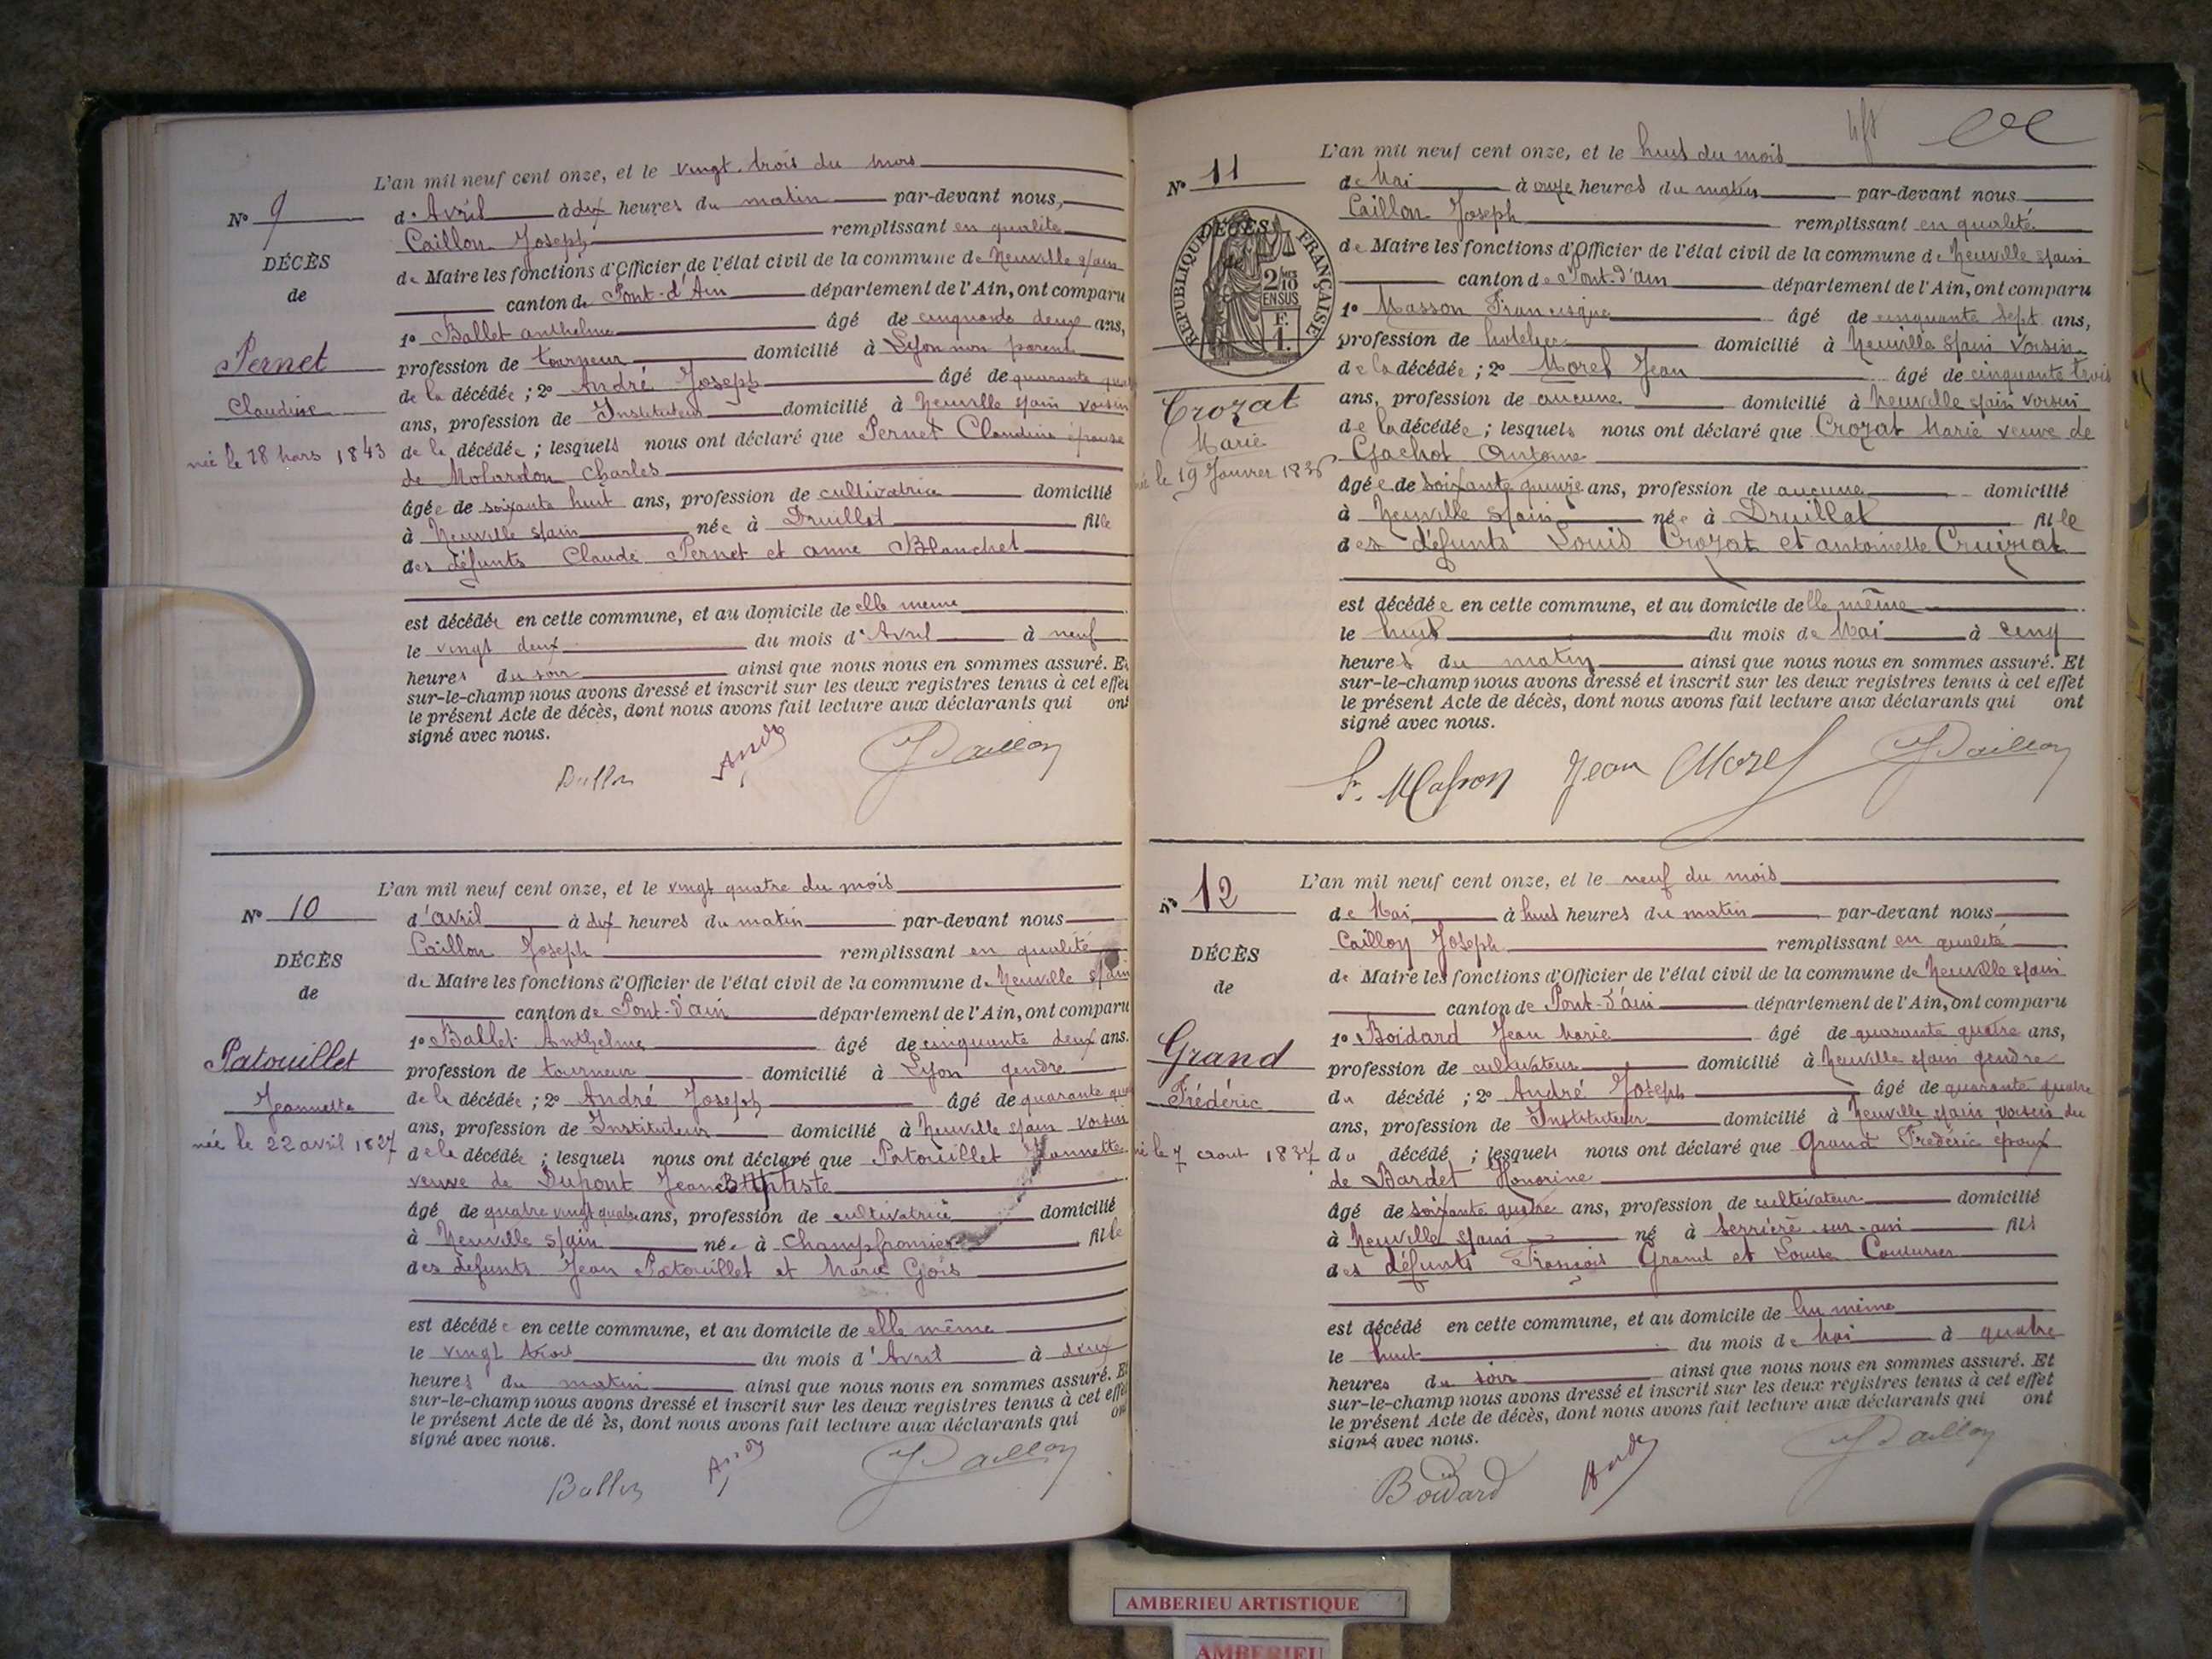 L'an mil neuf cent onze, et le vingt trois du mois
N° 9
d'Avril à dix heures du matin par-devant nous,
Caillon Joseph remplissant en qualité
DÉCÈS
de Maire les fonctions d'Officier de l'état civil de la commune de Neuville s/ain
de
canton de Pont-d'Ain département de l'Ain, ont comparu
1° Ballet anthelme âgé de cinquante deux ans,
Pernet
profession de tourneur domicilié à Lyon non parent
de la décédée ; 2° André Joseph âgé de quarante
Claudine
ans, profession de Instituteur domicilié à Neuville s/ain voisin
née le 28 Mars 1843
de la décédée ; lesquels nous ont déclaré que Pernet Claudine épouse
de Molardon Charles
âgée de soixante huit ans, profession de cultivatrice domicilié
à Neuville s/ain née à Druillat fille
des défunts Claude Pernet et anne Blanchet
est décédée en cette commune, et au domicile de elle même
le vingt deux du mois d'Avril à neuf
heures du soir ainsi que nous nous en sommes assuré. Et
sur-le-champ nous avons dressé et inscrit sur les deux registres tenus à cet effet
le présent Acte de décès, dont nous avons fait lecture aux déclarants qui ont
signé avec nous.
Ballet André JCaillon
L'an mil neuf cent onze, et le vingt quatre du mois
N° 10
d'avril à dix heures du matin par-devant nous
Caillon Joseph remplissant en qualité
DÉCÈS
de Maire les fonctions d'Officier de l'état civil de la commune de Neuville s/ain
de
canton de Pont-d'ain département de l'Ain, ont comparu
1° Ballet Anthelme âgé de cinquante deux ans.
Patouillet
profession de tourneur domicilié à Lyon gendre
de la décédée ; 2° André Joseph âgé de quarante
Jeannette
ans, profession de Instituteur domicilié à Neuville s/ain voisin
née le 22 avril 1827
de la décédée ; lesquels nous ont déclaré que Patouillet Jeannette
veuve de Dupont Jean Baptiste
âgé de quatre vingt quatre ans, profession de cultivatrice domicilié
à Neuville s/ain née à Champfromier fille
des défunts Jean Patouillet et Marie Gois
est décédée en cette commune, et au domicile de elle même
le vingt trois du mois d'Avril à deux
heures du matin ainsi que nous nous en sommes assuré. Et
sur-le-champ nous avons dressé et inscrit sur les deux registres tenus à cet effet
le présent Acte de dé ès, dont nous avons fait lecture aux déclarants qui ont
signé avec nous.
Ballet André JCaillon
L'an mil neuf cent onze, et le huit du mois
N° 11
de Mai à onze heures du matin par-devant nous
Caillon Joseph remplissant en qualité
DÉCÈS
RÉPUBLIQUE FRANÇAISE
2/10 EN SUS
F. 1.
de Maire les fonctions d'Officier de l'état civil de la commune de Neuville s/ain
canton de Pont-d'ain département de l'Ain, ont comparu
1° Masson Francisque âgé de cinquante sept ans,
profession de hotelier domicilié à Neuville s/ain voisin
de la décédée ; 2° Morel Jean âgé de cinquante trois
Crozat
ans, profession de aucune domicilié à Neuville s/ain voisin
Marie
de la décédée ; lesquels nous ont déclaré que Crozat Marie veuve de
Gachot Antoine
née le 19 Janvier 1836
âgée de soixante quinze ans, profession de aucune domicilié
à Neuville s/ain née à Druillat fille
des défunts Louis Crozat et antoinette Cruizat
est décédée en cette commune, et au domicile delle même
le huit du mois de Mai à cinq
heures du matin ainsi que nous nous en sommes assuré. Et
sur-le-champ nous avons dressé et inscrit sur les deux registres tenus à cet effet
le présent Acte de décès, dont nous avons fait lecture aux déclarants qui ont
signé avec nous.
F. Masson Jean Morel JCaillon
L'an mil neuf cent onze, et le neuf du mois
N° 12
de Mai à huit heures du matin par-devant nous
Caillon Joseph remplissant en qualité
DÉCÈS
de Maire les fonctions d'Officier de l'état civil de la commune de Neuville s/ain
de
canton de Pont-d'ain département de l'Ain, ont comparu
1° Boidard Jean Marie âgé de quarante quatre ans,
Grand
profession de cultivateur domicilié à Neuville s/ain gendre
du décédé ; 2° André Joseph âgé de quarante quatre
Frédéric
ans, profession de Instituteur domicilié à Neuville s/ain voisin du
né le 7 aout 1837
du décédé ; lesquels nous ont déclaré que Grand Frédéric époux
de Bardet Honorine
âgé de soixante quatre ans, profession de cultivateur domicilié
à Neuville s/ain né à Serrière-sur-ain fils
des défunts François Grand et Louise Couturier
est décédé en cette commune, et au domicile de lui même
le huit du mois de Mai à quatre
heures du soir ainsi que nous nous en sommes assuré. Et
sur-le-champ nous avons dressé et inscrit sur les deux registres tenus à cet effet
le présent Acte de décès, dont nous avons fait lecture aux déclarants qui ont
signé avec nous.
Boidard André JCaillon
AMBERIEU ARTISTIQUE
AMBERIEU